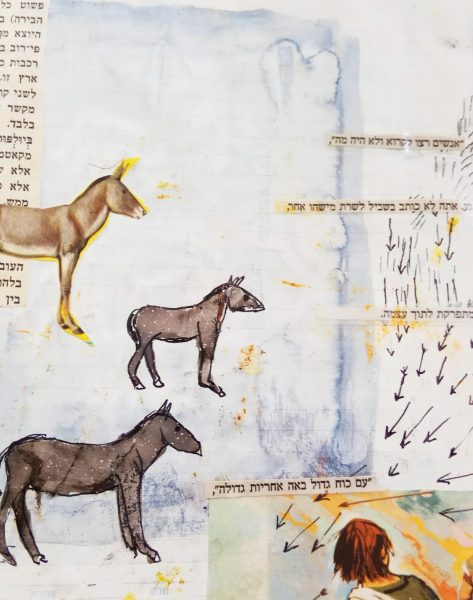 פשוט כל
הבירה) ב
היוצא מן
פי־רוב ב
רכבות כ
ארץ זו.
לשני קו
מקשר
בלבד.
בְּיוּלְפּוּ
מקאטמ
אלא ש
אלא כ
ממש.
העוב
בלהו
בין
"אנשים רצו לקרוא ולא היה מה",
מן, אתה לא כותב בשביל לשרת מישהו אחר.
מתפרקת לתוך עצמה.
"עם כוח גדול באה אחריות גדולה",
אפריל